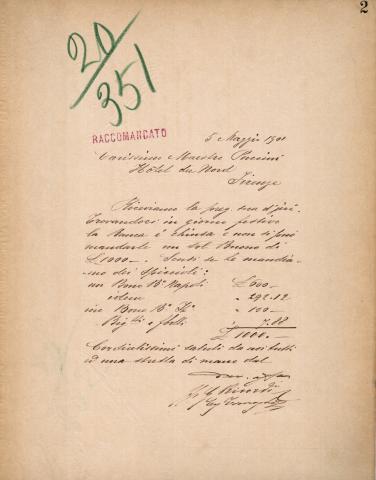 2
20/351
RACCOMANDATO
5 Maggio 1901
Carissimo Maestro Puccini
Hôtel du Nord
Firenze
Riceviamo la preg. sua d'jeri.
Trovandoci in giorno festivo
la Banca è chiusa e non si può
mandarle un sol Buono di
£1000 — . Scusi se le mandia-
mo dei spiccioli:
un Buono Bº Napoli £ 600 —
idem " 292.12
in Buono Bº " 100 —
Big.ti e 7.88
£ 1000. —
Cordialissimi saluti da noi tutti
ed una stretta di mano dal
G. Ricordi